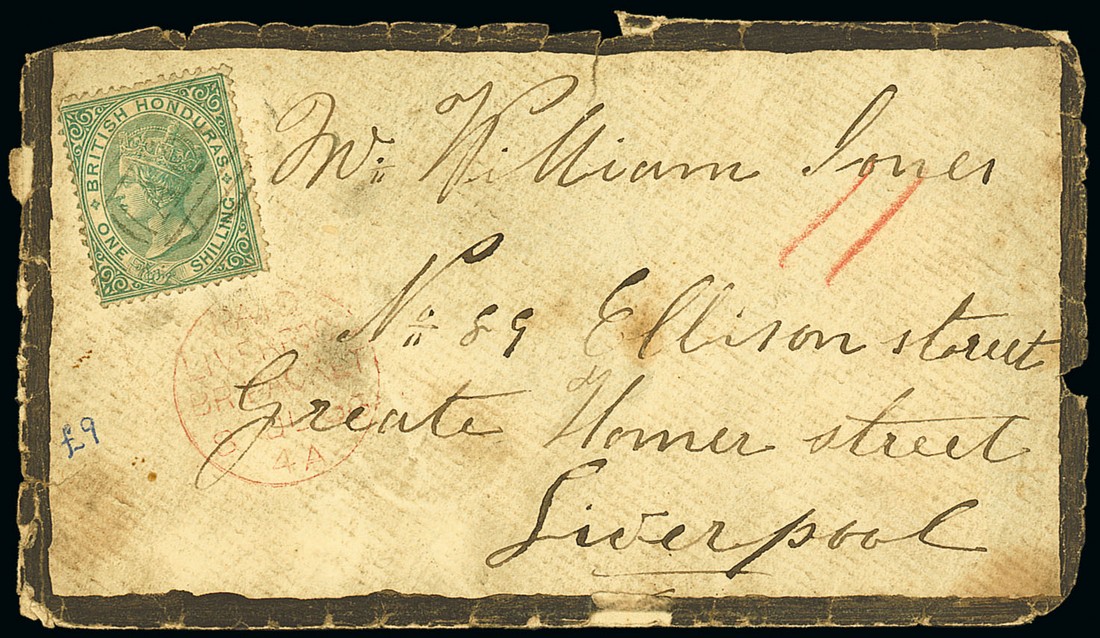 BRITISH HONDURAS
ONE SHILLING
Mr. William Jones
No 89 Ellison street
Greate Homer street
Liverpool
£9
4 A